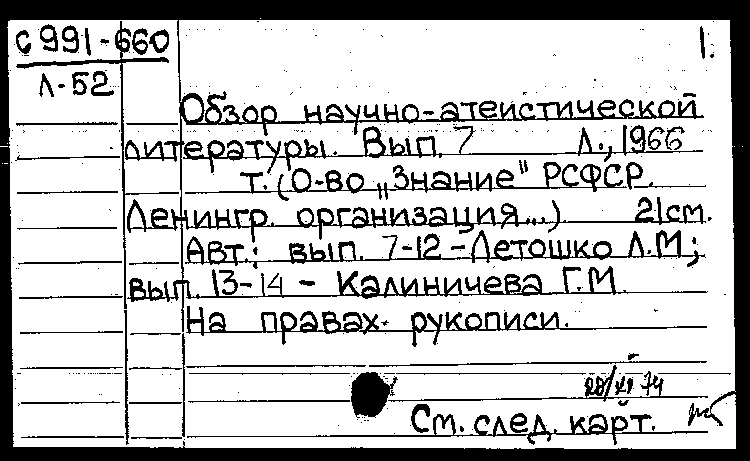 С 991-660
1.
Л-52
Обзор научно-атеистической
литературы. Вып. 7 Л., 1966
т. (О-во „Знание" РСФСР.
Ленингр. организация...) 21см.
Авт.: вып. 7-12 - Летошко Л.М;
вып. 13-14 - Калиничева Г.М.
На правах рукописи.
28/XI 74
См. след. карт.